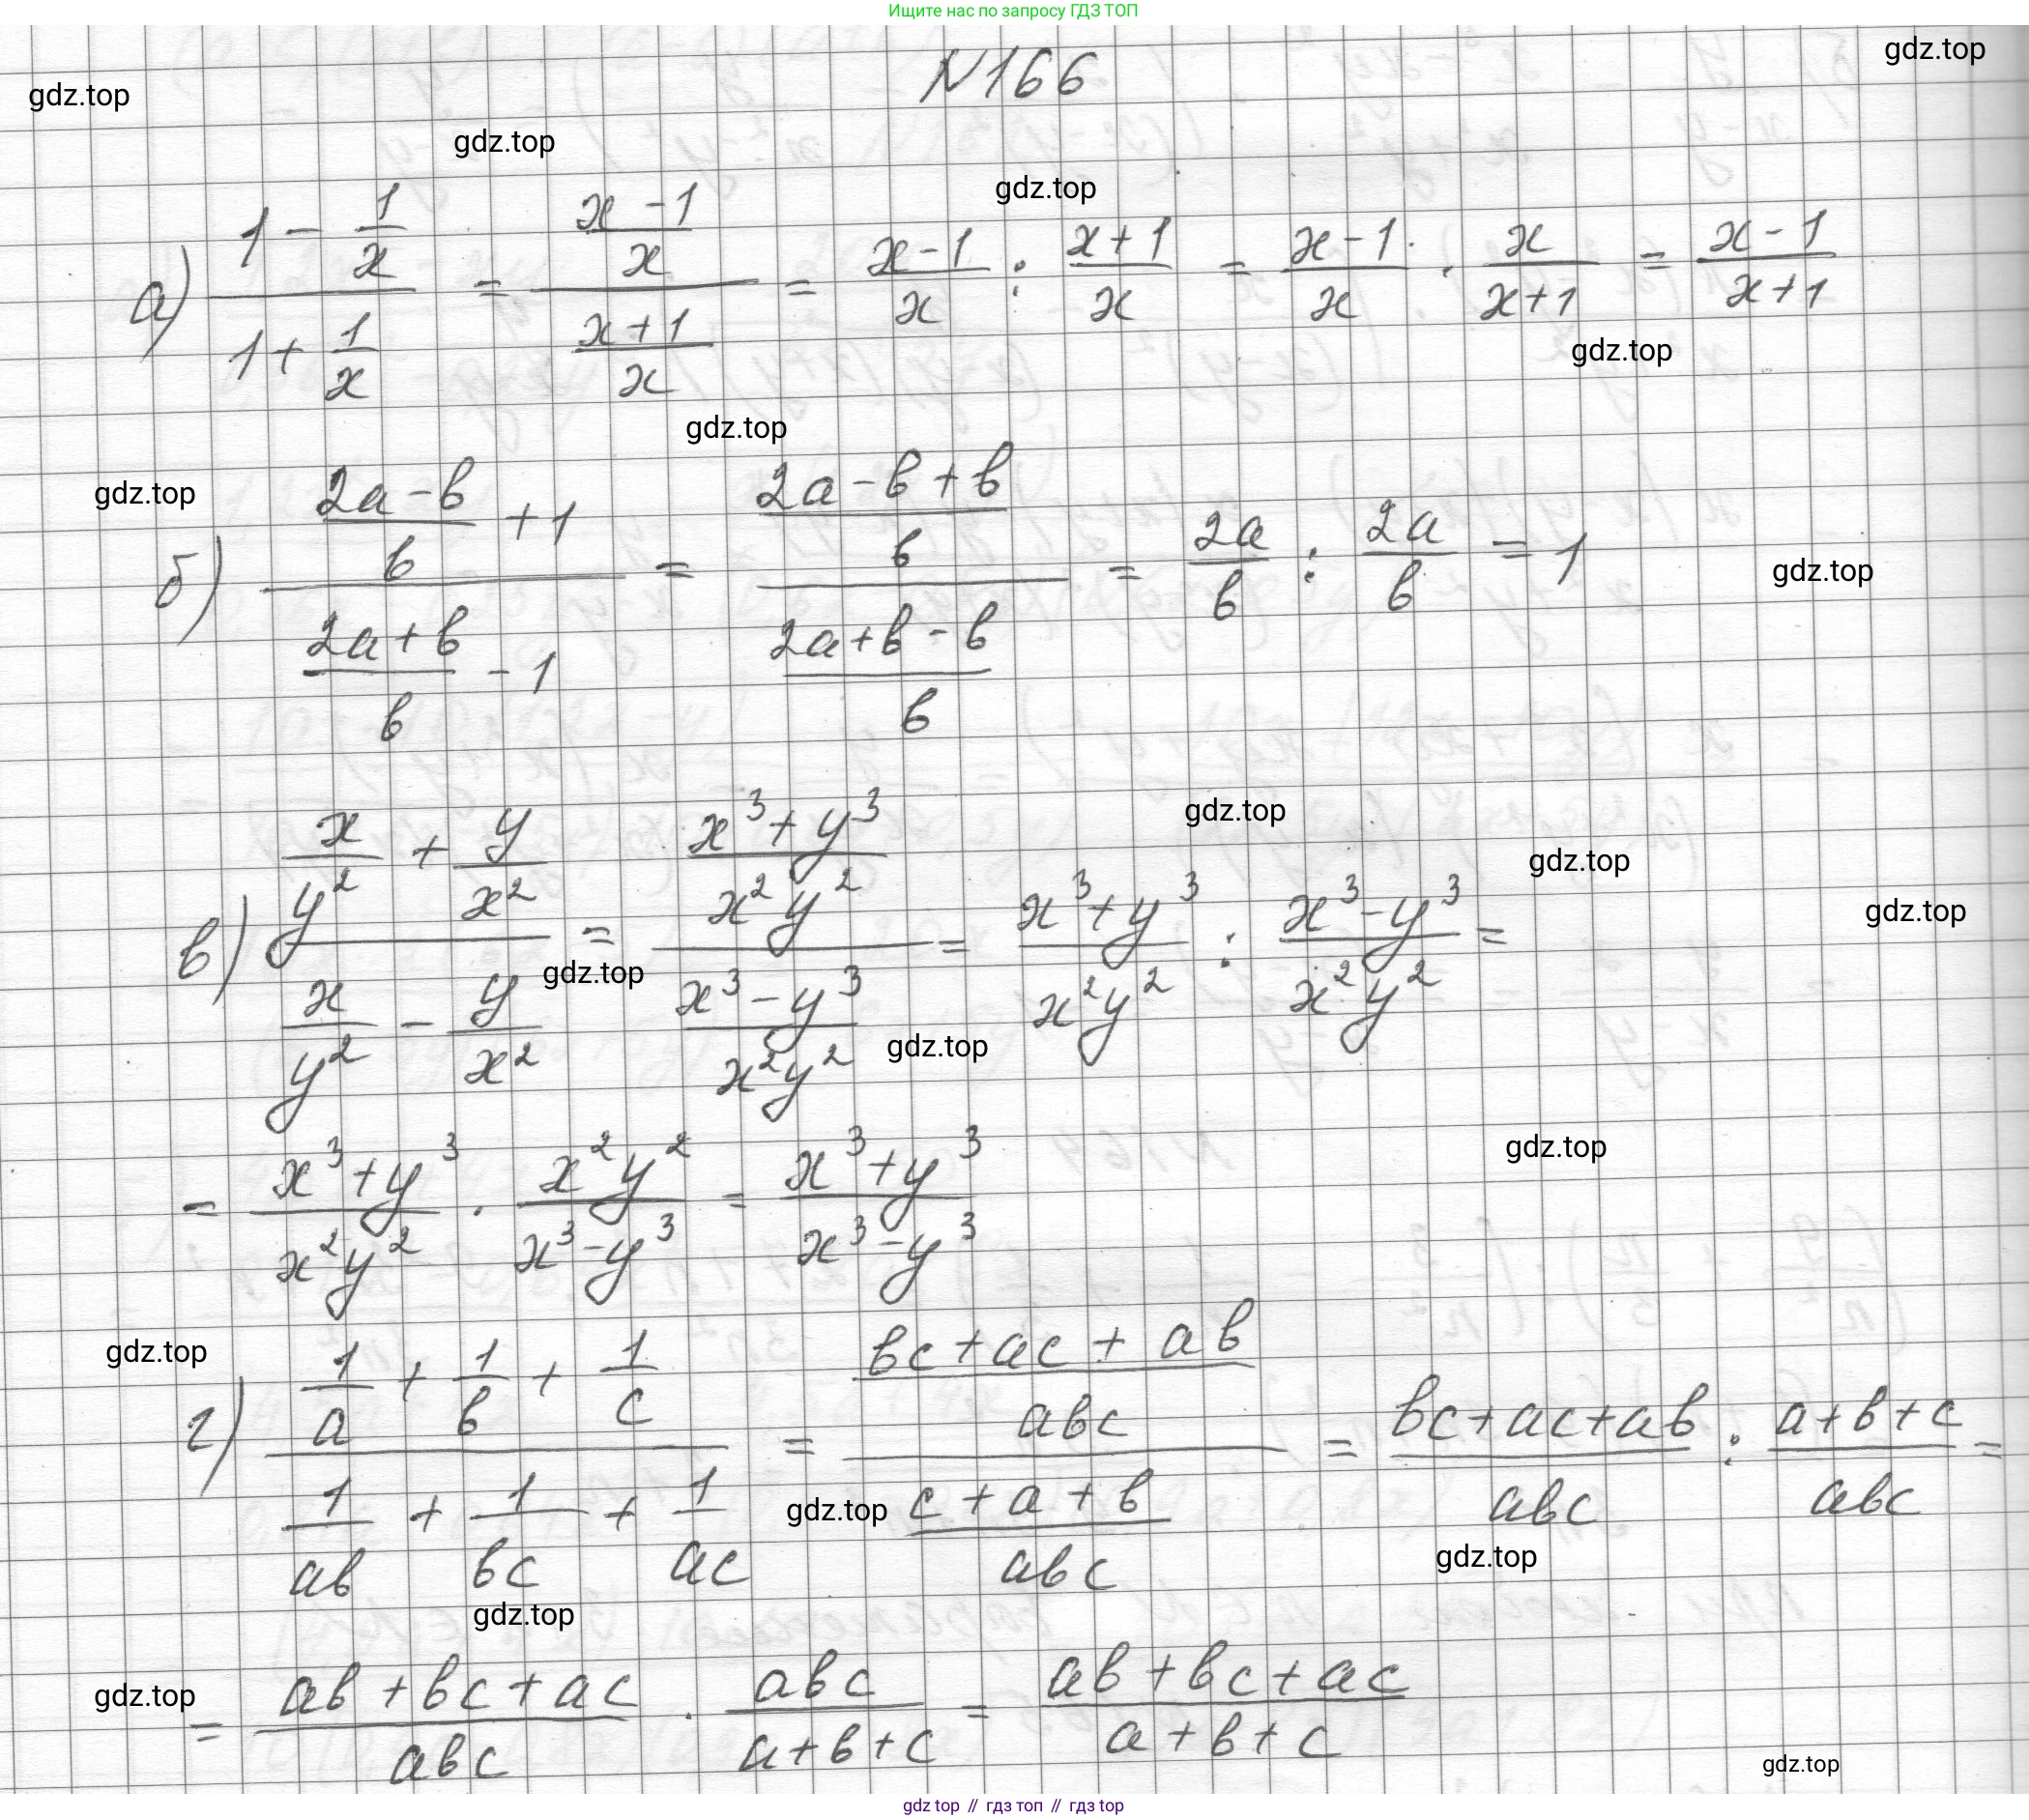 Ищите нас по запросу ГДЗ ТОП
gdz.top
N166
gdz.top
gdz.top
gdz.top
а) (1 - 1/x)/(1 + 1/x) = ((x-1)/x)/((x+1)/x) = (x-1)/x : (x+1)/x = (x-1)/x · x/(x+1) = (x-1)/(x+1)
gdz.top
gdz.top
gdz.top
б) ((2a-b)/b + 1)/((2a+b)/b - 1) = ((2a-b+b)/b)/((2a+b-b)/b) = 2a/b : 2a/b = 1
gdz.top
gdz.top
gdz.top
gdz.top
в) (x/y² + y/x²)/(x/y² - y/x²) = ((x³+y³)/(x²y²))/((x³-y³)/(x²y²)) = (x³+y³)/(x²y²) : (x³-y³)/(x²y²) =
gdz.top
gdz.top
gdz.top
= (x³+y³)/(x²y²) · (x²y²)/(x³-y³) = (x³+y³)/(x³-y³)
gdz.top
г) (1/a + 1/b + 1/c)/(1/ab + 1/bc + 1/ac) = ((bc+ac+ab)/abc)/((c+a+b)/abc) = (bc+ac+ab)/abc : (a+b+c)/abc =
gdz.top
gdz.top
gdz.top
gdz.top
= (ab+bc+ac)/abc · abc/(a+b+c) = (ab+bc+ac)/(a+b+c)
gdz.top
gdz top // гдз топ // гдз top